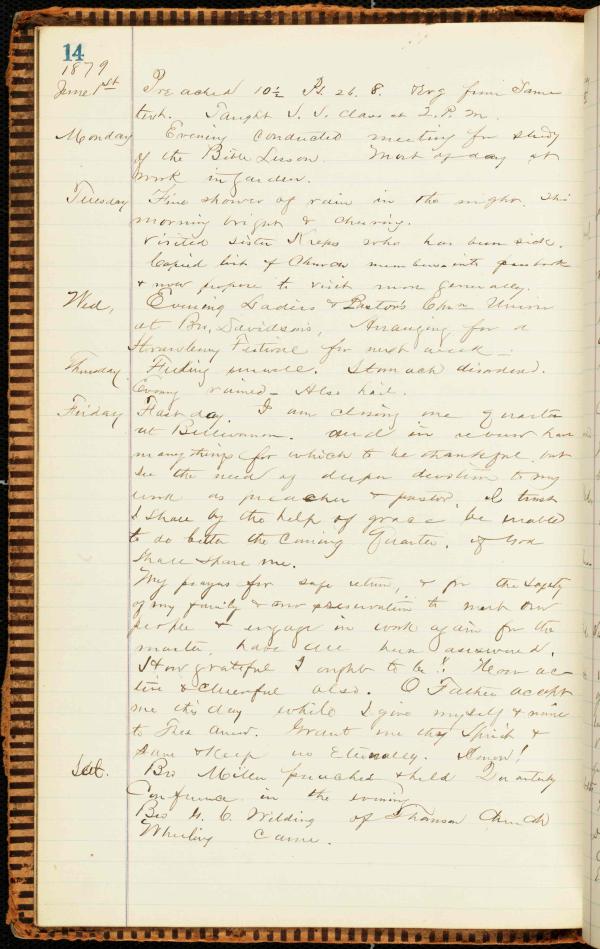 14
1879
June 1st Preached 10½ Ps. 26. 8. Evg from Same
text. Taught S. S. class at 2. P. M.
Monday Evening conducted meeting for study
of the Bible Lesson. Most of day at
work in garden.
Tuesday Fine shower of rain in the night. This
morning bright & cheering.
Visited Sister Kreps who has been sick.
Copied list of Church members into passbook
& now propose to visit more generally.
Wed, Evening Ladies & Pastor's Chrn Union
at Bro. Davidson's, Arranging for a
Strawberry Festival for next week -
Thursday Feeling unwell. Stomach disordered.
Evening rained - Also hail.
Friday Fast day. I am closing one quarter
at Bellvernon. and in review have
many things for which to be thankful but
see the need of deeper devotion to my
work as preacher & pastor. I trust
I shall by the help of grace be enabled
to do better the coming Quarter. if God
shall spare me.
My prayers for safe return, & for the safety
of my family & our preservation to meet our
people & engage in work again for the
master, have all been answered.
How grateful I ought to be!! How ac-
tive & cheerful also. O Father accept
me this day while I give myself & mine
to Thee anew. Grant me thy Spirit &
save & keep us Eternally. Amen!
Sat. Bro Miller preached & held Quarterly
Conference in the evening
Bro G. C. Wilding of Thomson Church
Wheeling came.